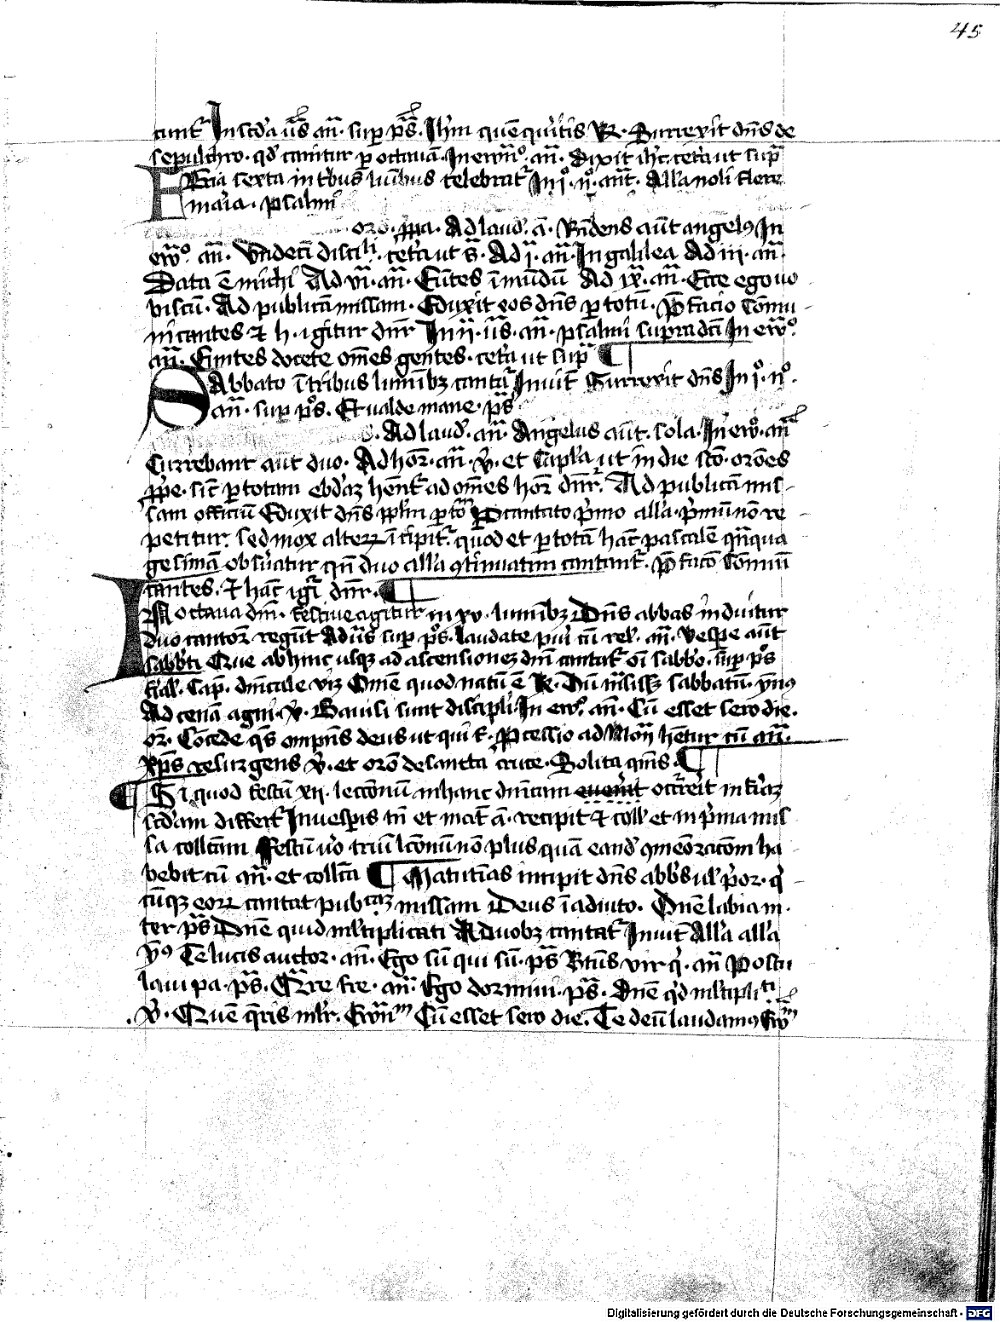 45
cunt᷑ In scda ūs an̄. sup p̄s. Ihm̄ quē qritis R̷. Surrexit dns de
sepulchro. qd canitur p octauā. In ewo. an̄. Dixit ihc. cetᷓa ut sup
Feria sexta in tribus luībus celebrat᷑ In j. n̊. ant̄. Alla noli flere
maria. psalmi
oro. ppa. Ad laud. a. Rn̄dens aūt angelꝰ In
ew̄o. an̄. Vndeci discili. cetᷓa ut s̄. Ad j. an̄. In galilea Ad iii. an̄.
Data ē michi Ad vi. an̄. Eūtes ī mūdū Ad ix. an̄. Ecce ego uo
biscū. Ad publicā missam. Eduxit eos dns̄ p totū. P̄facio Cōmu
nicantes ⁊ h. igitur dnr̄ In ii. ūs. an̄. psalmi supradc̄i In ew̄o.
an̄. Euntes docete om̄es gentes. cetᷓa ut sup ¶
Sabbato ī tribus luminibꝫ cantat᷑ Inuit̄ Surrexit dns̄ In j. n̊.
an̄. sup p̄s. Et ualde mane. p̄s
Ad laud. an̄. Angelus aūt. sola. In eẘ. an̄
Currebant aūt duo. Ad hor̄. an̄. v̄. et Capl̄a ut in die sc̄o. orōes
ppe. sic̄ p totam ebdaꝫ hēnt᷑ ad om̄es hor̄ dnr̄. Ad publicā mis-
sam officiū Eduxit dns̄ pplm̄ p tō Pcantato p̄mo alla. p̄mū non re
petitur. sed mox alteꝝ ī cipit᷑. quod et p totā hanc pascalē qn̄qua
gesimā obsuatur qn̄ duo alla ꝯtinuatim cantant᷑. P̄facō Cōmūi
cantes. ⁊ hanc igr̄ dnr̄. ¶
In octaua dni. festiue agitur in xv. luminibꝫ Dns̄ abbas induitur
duo cantor̄ regūt Ad iis sup p̄s. laudate pui cū rel. an̄. Vespe aūt
sabbi Que abhinc usqꝫ ad ascensioneꝫ dni cantat᷑ oi sabbo. sup p̄s
fial. Cap̄. dnicale viꝫ Omē quod natū ē R̷. Dū tn̄sisset sabbatū. ymꝰ
Ad cenā agni. v̄. Gauisi sunt discipli. In eẘ. an̄. Cū esset sero die.
or̄. Cōcede qs̄ ompns̄ deus ut qui f. Pcessio ad Mon hetur cū an̄.
Xp̄s resurgens v̄. et orō de sancta cruce. Solita qn̄s. ¶
¶ Si quod festū xii. leccionū in hanc dnicam euenit occ̄rerit in f̄iaꝫ
scdam differt᷑ In uespis tn̄ et mat̄ a. recipit ⁊ coll et in p̄ma mis
sa collc̄am Festū ůo triū lc̄onū non plus quā eand ꝯmeōracōm ha
bebit cū an̄. et collc̄a ¶ Matutinas incipit dns̄ abbs ul p̄or. q
cūqꝫ eoꝝ cantat pubcaꝫ missam Deus ī adiuto. Dne labia m.
ter p̄s Dne quid ml̄tiplicati A duobꝫ cantat᷑ Inuit̄ Alla alla
ymꝰ Te lucis auctor. an̄. Ego sū qui sū. p̄s Btūs vir q. an̄ Postu
laui pa. p̄s. Qr̄re fre. an̄. Ego dormiui. p̄s. Dne qd ml̄tiplicati
v̄. Quē qris ml̄r. Ewm̄ Cū esset sero die. Te deū laudamꝰ Ew̄
Digitalisierung gefördert durch die Deutsche Forschungsgemeinschaft - DFG